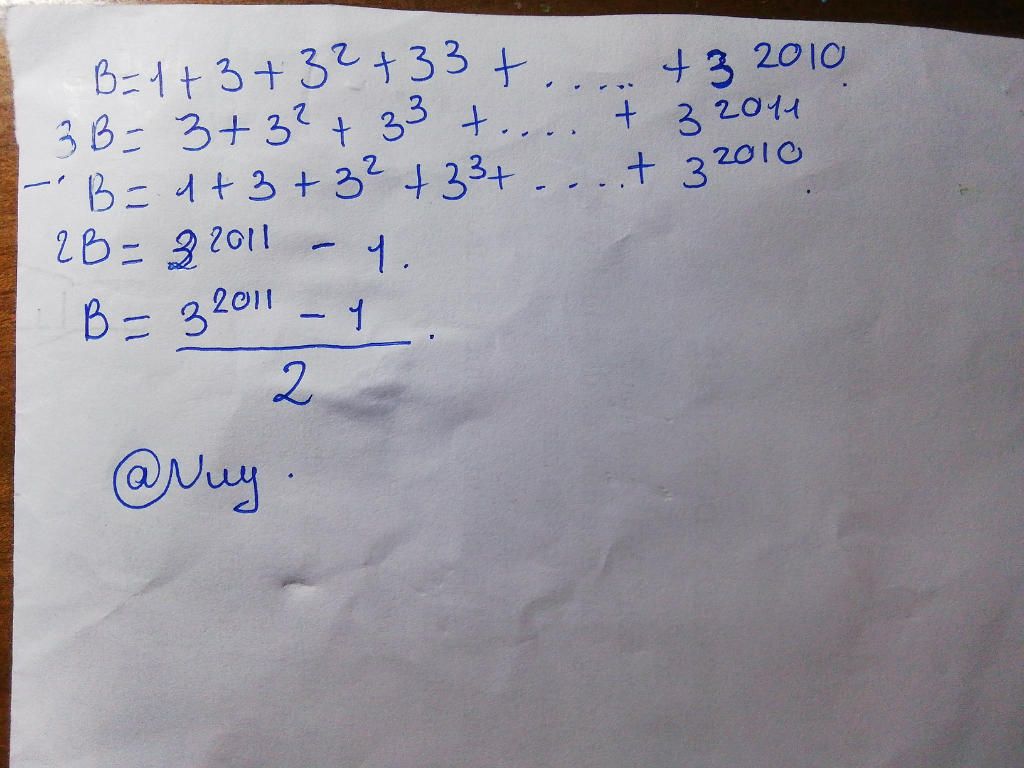 B=1+3+3²+33+......+3 2010.
3B= 3+3²+3³+....+ 3²⁰¹¹
- B= 1+3+3²+3³+.....+ 3²⁰¹⁰.
2B= 3²⁰¹¹ - 1.
B= 3²⁰¹¹ - 1.
2
@Nuy.